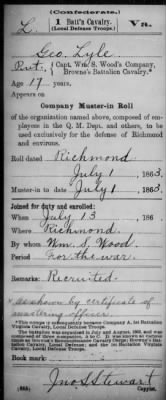 (Confederate.)
L. 1 Batt'n Cavalry. Va.
(Local Defense Troops.)
Geo. Lyle
Pvt., Capt. Wm. S. Wood's Company,
Browne's Battalion Cavalry.*
Age 17 years.
Appears on
Company Muster-in Roll
of the organization named above, composed of em-
ployees in the Q. M. Dept. and others, to be
used exclusively for the defense of Richmond
and environs.
Roll dated Richmond
July 1, 1863.
Muster-in to date July 1, 1863.
Joined for duty and enrolled:
When July 13, 186
Where Richmond.
By whom Wm. S. Wood
Period For the war.
Remarks: Recruited.
* as shown by certificate of
mustering officer.
*This company subsequently became Company A, 1st Battalion
Virginia Cavalry, Local Defense Troops.
Book mark:
Jno. S. Stewart
Copyist.